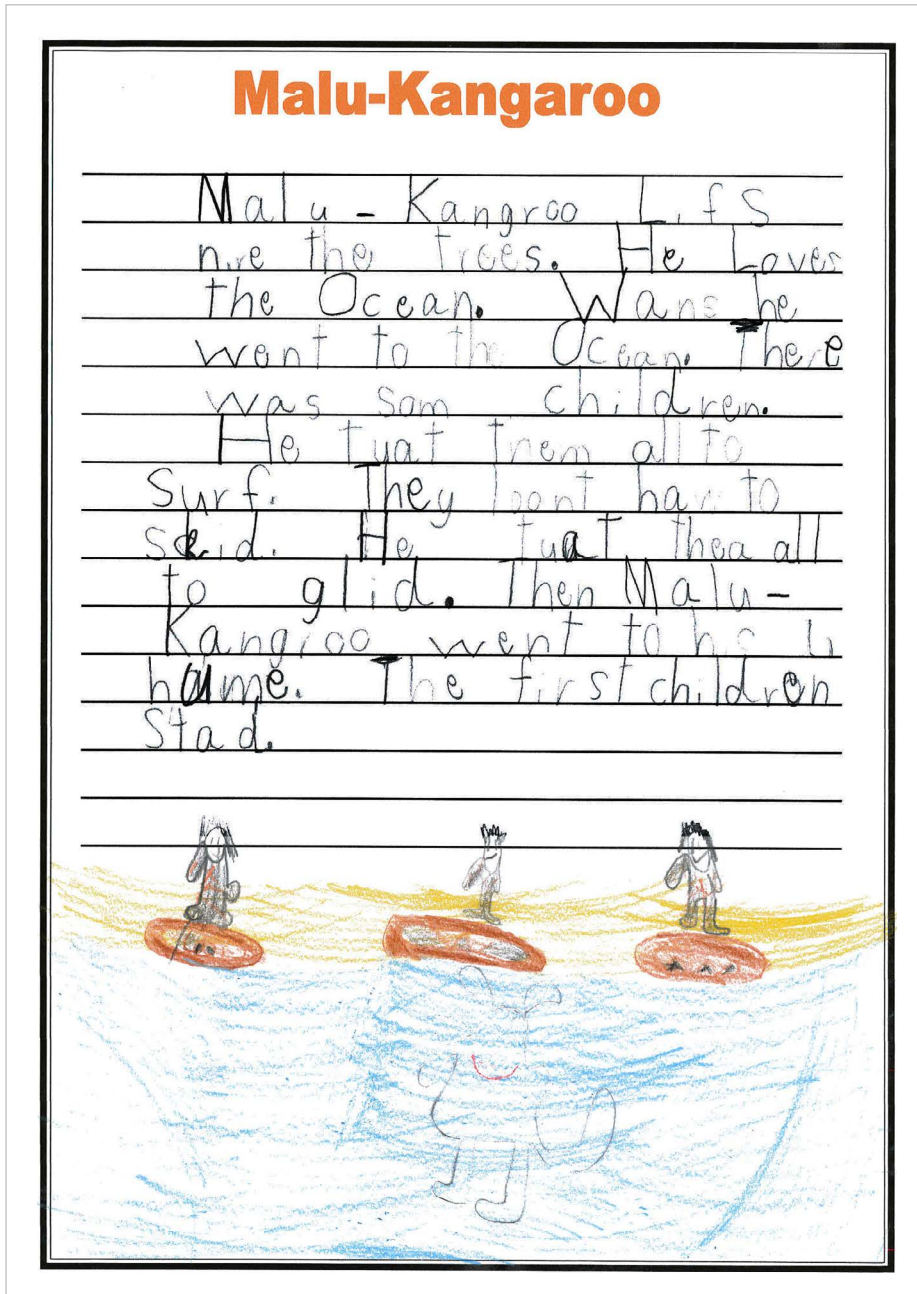 Malu-Kangaroo
Malu - Kangroo Lifs
nire the trees. He Loves
the Ocean. Wans he
went to the Ocean. There
was som children.
He tuat them all to
Surf. They lont hav to
skid. He tuat thea all
to glid. Then Malu-
Kangroo went to his
hame. The first children
Stad.